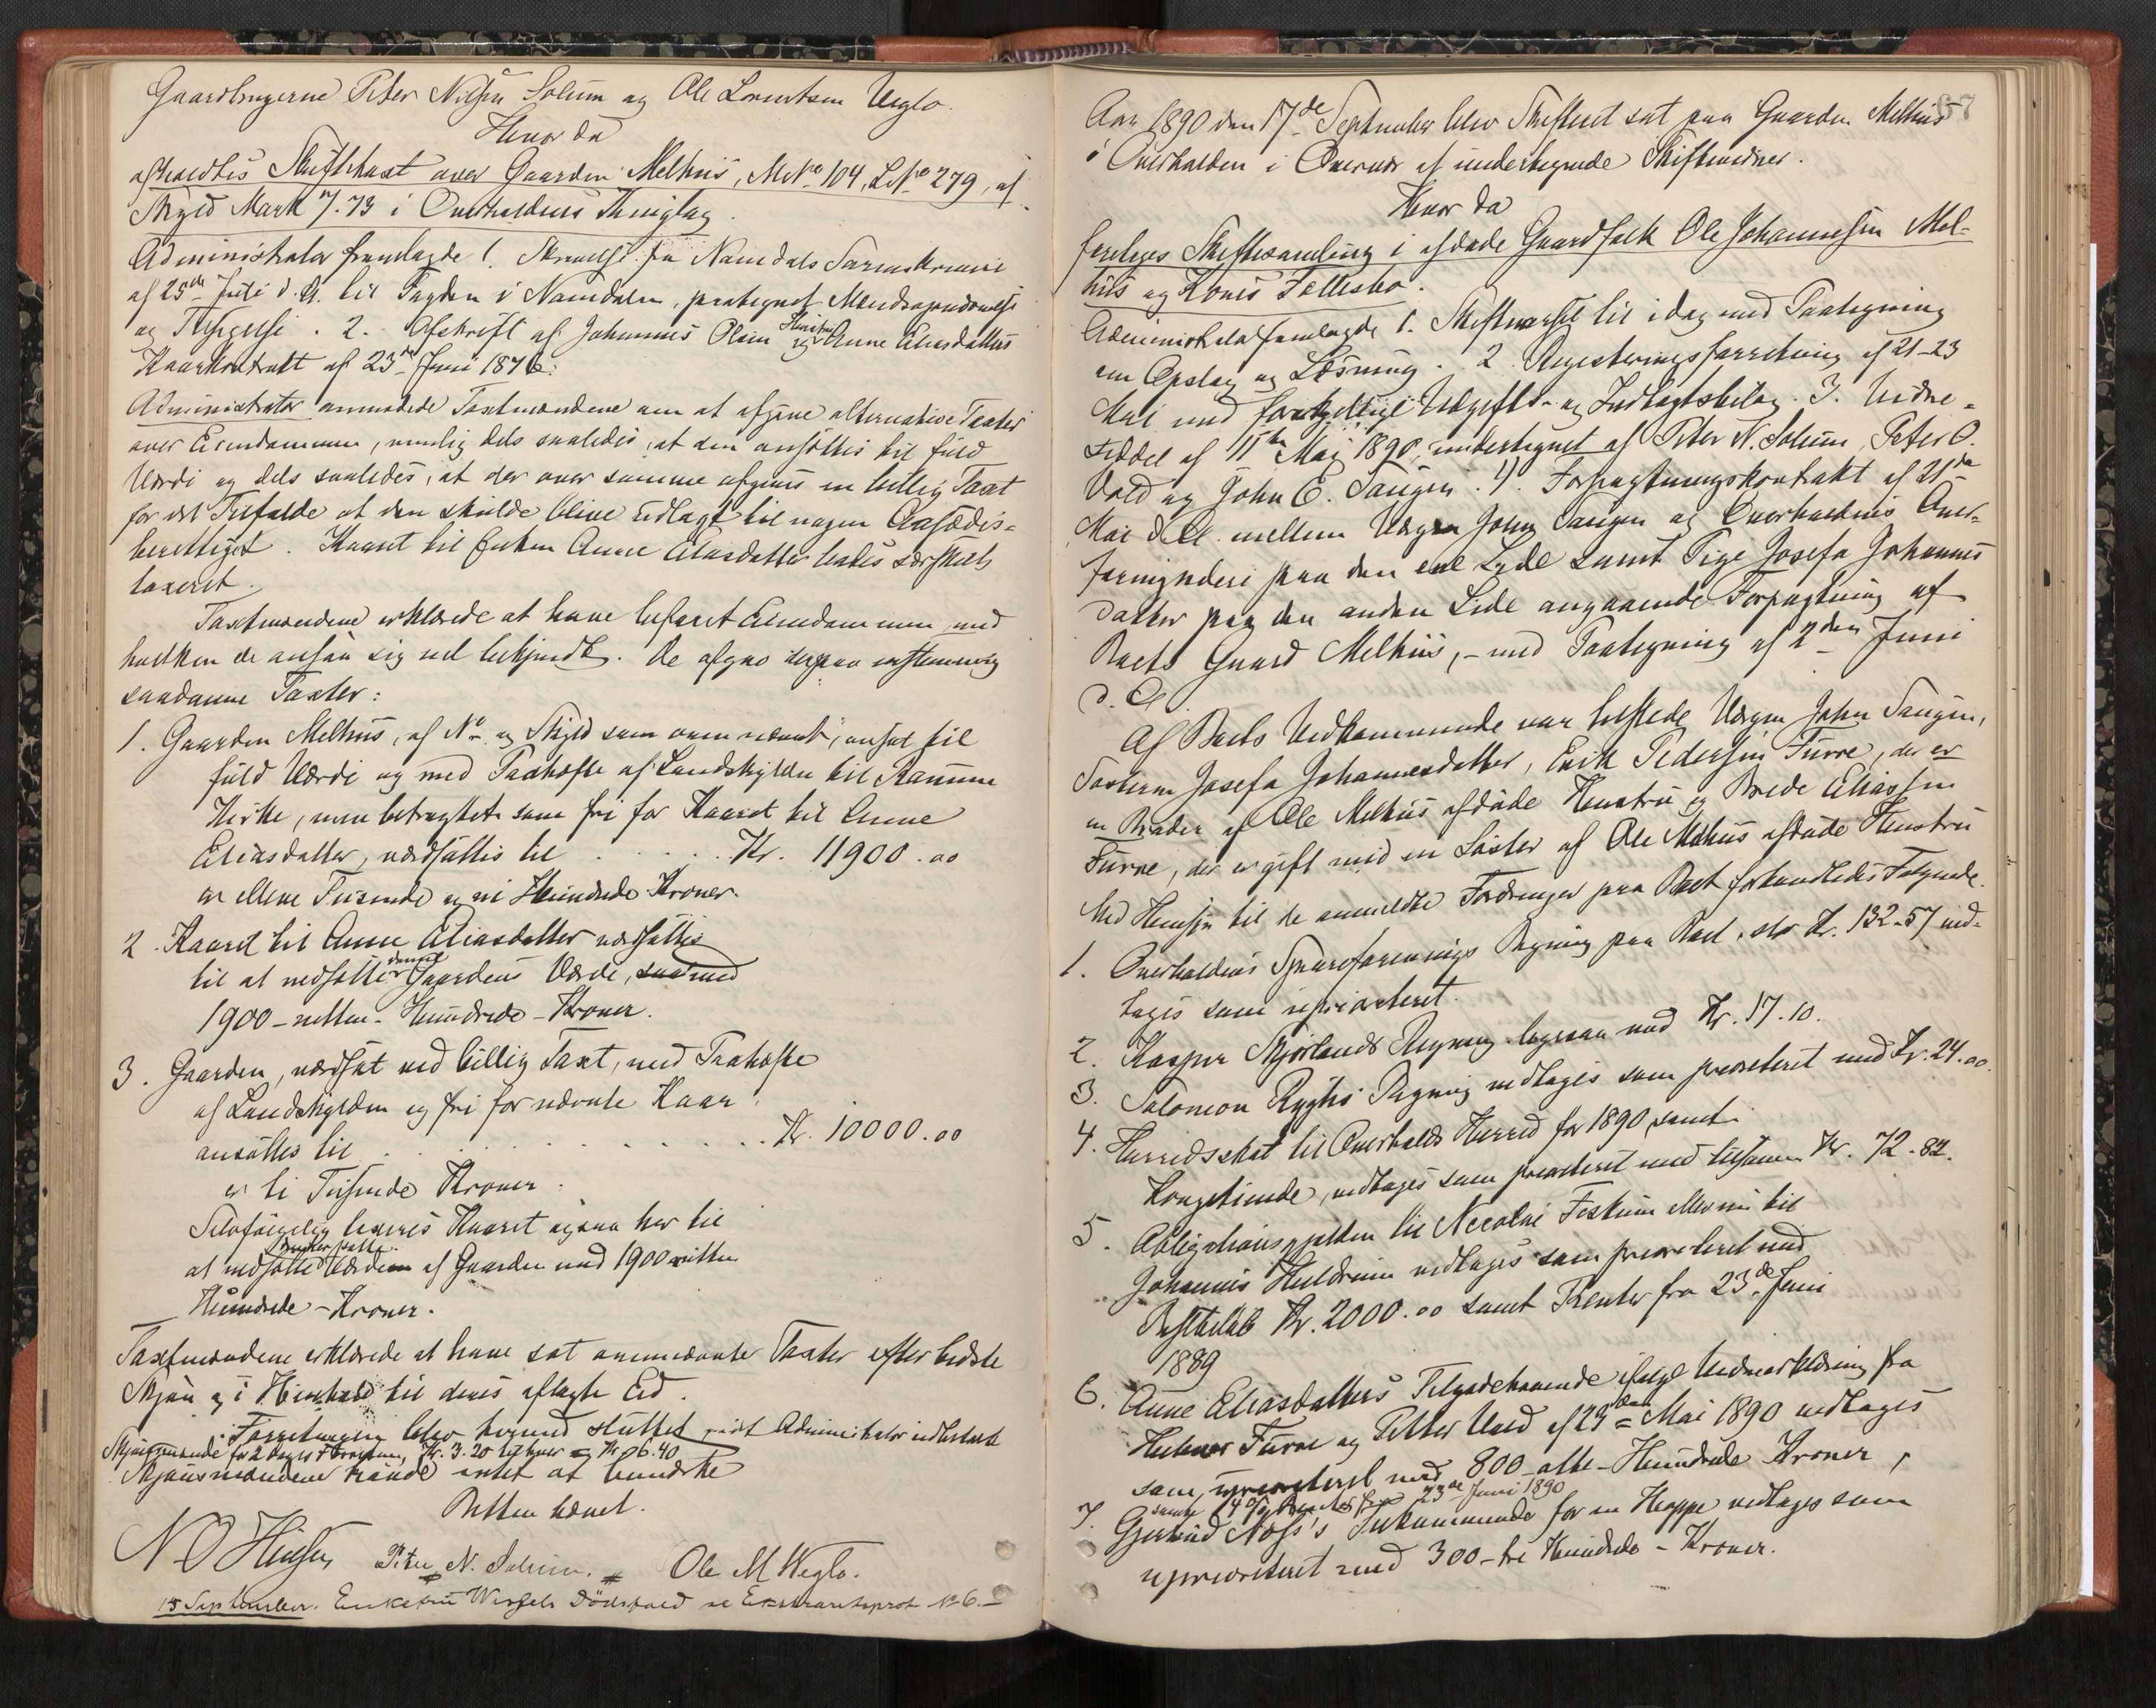 Gaardbrugerne Peter Nilsen Solum og Ole Lorentsen Veglo.
Hvor da
afholdtes Skiftetaxt over Gaarden Melhus, MNo 104, LNo 279, af
Skyld Mark 7.73 i Overhaldens Thinglag.
Administrator fremlagde 1. Skrivelse fra Namdals Sorenskriveri
af 25de Juli d. A. til Fogden i Namdalen, paategnet Mændsopnævnelse
og 2. Afskrift af Johannes Olsen og Hustru Anne Eliasdatters
Kaarkontrakt af 23de Juni 1876.
Administrator anmodede Taxtmændene om at afgive alternative Taxter
over Eiendommen, nemlig dels saaledes, at den ansættes til fuld
Værdi og dels saaledes, at der over samme afgives en billig Taxt
for det Tilfælde at den skulde blive udlagt til nogen Aasædes-
berettiget. Kaaret til Enken Anne Eliasdatter bedes særskilt
taxeret.
Taxtmændene erklærede at have befaret Eiendommen med
hvilken de ansaa sig vel bekjendt. De afgav derpaa enstemmig
saadanne Taxter:
1. Gaarden Melhus, af No og Skyld som oven nævnt, ansat til
fuld Værdi og med Paahæfte af Landskylden til Ranum
Kirke, men betragtet som fri for Kaaret til Anne
Eliasdatter, værdsættes til . . . . . Kr. 11900.00
er elleve Tusinde og ni Hundrede Kroner.
2. Kaaret til Anne Eliasdatter værdsættes
til at nedsætte denne Gaardens Værdi, med
1900 - nitten - Hundrede - Kroner.
3. Gaarden, værdsat ved billig Taxt, med Paahæfte
af Landskylden og fri for nævnte Kaar
ansættes til . . . . . . . . Kr. 10000.00
er ti Tusinde Kroner.
Selvfølgelig taxeres Kaaret ogsaa her til
at nedsætte Værdien af Gaarden med 1900 nitten
Hundrede - Kroner.
Taxtmændene erklærede at have sat ovennævnte Taxter efter bedste
Skjøn og i Henhold til deres aflagte Ed.
Forretningen blev hermed sluttet Administrator
Skjønsmænde for 2 Dages Forretning, Kr. 3.20 til hver = Kr. 6.40
Skjønsmændene havde intet at bemærke
Retten hævet.
N O Peter N. Solum. Ole M Veglo.
15 September. Enkefru Wessels Dødsfald se Extraretsprot. No 6.
87
Aar 1890 den 17de September blev Skifteret sat paa Gaarden Melhus
i Overhalden i Overvær af undertegnede Skiftevidner.
Hvor da
foretoges Skiftesamling i afdøde Gaardfolk Ole Johannessen Mel-
hus og Kones Fællesbo.
Administrator fremlagde 1. Skiftevarsel til idag med Paategning
om Opslag og Læsning. 2. Registreringsforretning af 21-23
Mai med forskjellige Udgifts- og Indtægtsbilag. 3. Vidne-
seddel af 11te Mai 1890, undertegnet af Peter N. Solum, Peter O.
Vold og John E. Saugen. 4. Forpagtningskontrakt af 21de
Mai d. A. mellem Værgen John Saugen og Overhaldens Over-
formynderi paa den ene Side samt Pige Josefa Johannes-
datter paa den anden Side angaaende Forpagtning af
Boets Gaard Melhus, - med Paategning af 2den Juni
d. A.
Af Boets Vedkommende var tilstede Værgen John Saugen,
Josefa Johannesdatter, Erik Pedersen Furre, der er
en Broder af Ole Melhus afdøde Hustru og Brede Eliassen
Furre, der er gift med en Søster af Ole Melhus afdøde Hustru
Med Hensyn til de anmeldte Fordringer paa Boet forhandledes Følgende.
1. Overhaldens Spareforenings Regning paa Boet, stor Kr. 132-57 ved-
tages som uprioriteret.
2. Kaspar Skjørlands Regning ligesaa med Kr. 17.10.
3. Salomon Rygh's Regning vedtages som prioriteret med Kr. 24.00.
4. Herredsskat til Overhalds Herred for 1890 samt
Kongetiende, vedtages som prioriteret med tilsammen Kr. 72-82.
5. Obligationsgjælden til Nicolai Feskum eller nu til
Johannes Huldreim vedtages som prioriteret med
Restbeløb Kr. 2000.00 samt Renter fra 23de Juni
1889
6. Anne Eliasdatters Tilgodehavende ifølge Vidneerklæring fra
Furre og Petter Vold af 29de Mai 1890 vedtages
som uprioriteret med 800 - otte - Hundrede Kroner,
samt 4 % Renter fra 23de Juni 1890
7. Gjertrud Næss's Tilkommende for en Hoppe vedtages som
uprioriteret med 300 - tre Hundrede - Kroner.